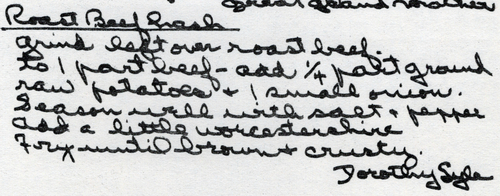 Great Grand Mother
Roast Beef Hash
Grind left over roast beef.
To 1 part beef - add 1/4 part ground
raw potatoes + 1 small onion.
Season well with salt + pepper
add a little worcestershire
Fry until brown + crusty.
Dorothy